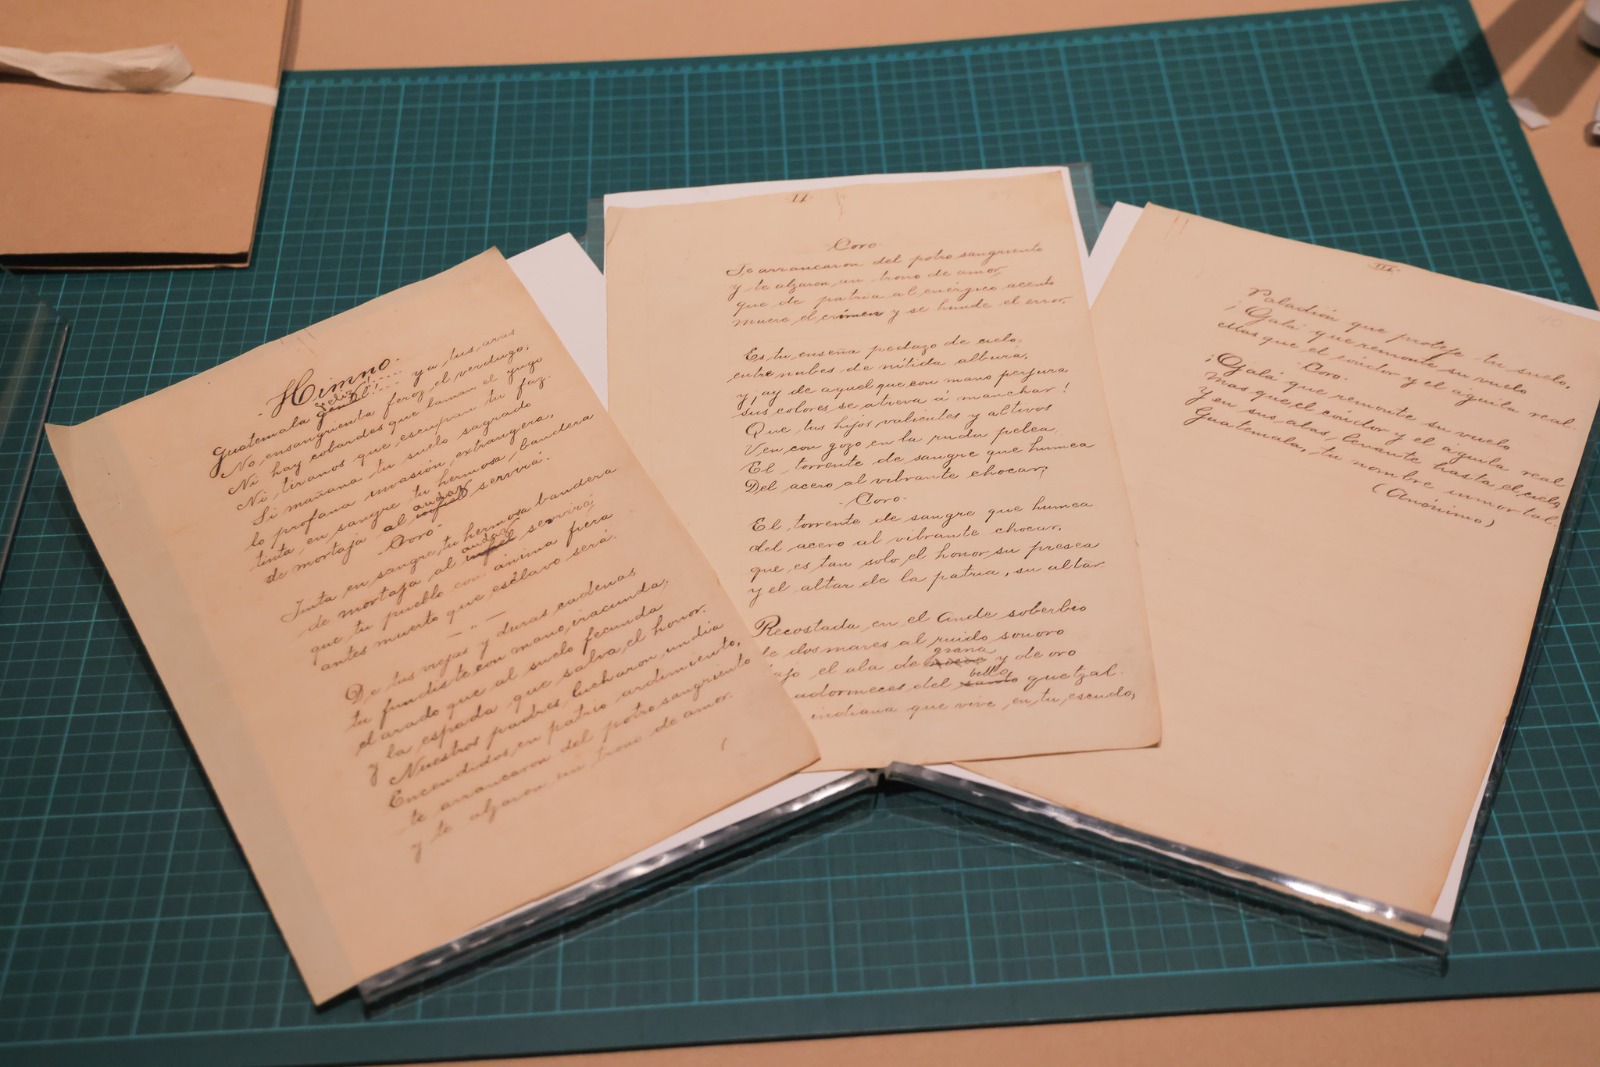 Himno.
feliz
Guatemala genial!..... ya tus aras
No ensangrienta feroz el verdugo;
Ni hay cobardes que laman el yugo
Ni tiranos que escupan tu faz.
Si mañana tu suelo sagrado
lo profana invasión extrangera,
tinta en sangre tu hermosa bandera
audaz
de mortaja al infiel servirá.
Coro
Tinta en sangre tu hermosa bandera
audaz
de mortaja al infiel servirá
que tu pueblo con ánima fiera
antes muerto que esclavo será.
— " —
De tus viejas y duras cadenas
tu fundiste con mano iracunda,
el arado que al suelo fecunda
y la espada que salva el honor.
Nuestros padres lucharon un dia
Encendidos en patrio ardimiento,
te arrancaron del potro sangriento
y te alzaron un trono de amor.
II
Coro
Te arrancaron del potro sangriento
y te alzaron un trono de amor,
que de patria al enérgico acento
muere el crimen y se hunde el error.
Es tu enseña pedazo de cielo,
entre nubes de nítida albura,
y, ay de aquel que con mano perjura
sus colores se atreva á manchar!
Que tus hijos valientes y altivos
Ven con gozo en la ruda pelea
El torrente de sangre que humea
Del acero al vibrante chocar;
-Coro-
El torrente de sangre que humea
del acero al vibrante chocar,
que es tan solo el honor su presea
y el altar de la patria, su altar
Recostada en el Ande soberbio
de dos mares al ruido sonoro
grana
bajo el ala de y de oro
bello
adormeces del santo quetzal.
indiana que vive en tu escudo,
III
Paladión que proteje tu suelo,
¡Ojalá que remonte su vuelo
Mas que el cóndor y el aguila real.
Coro.
¡Ojalá que remonte su vuelo
Mas que el cóndor y el aguila real
Y en sus alas, levante hasta el cielo,
Guatemala, tu nombre inmortal.
(Anónimo)